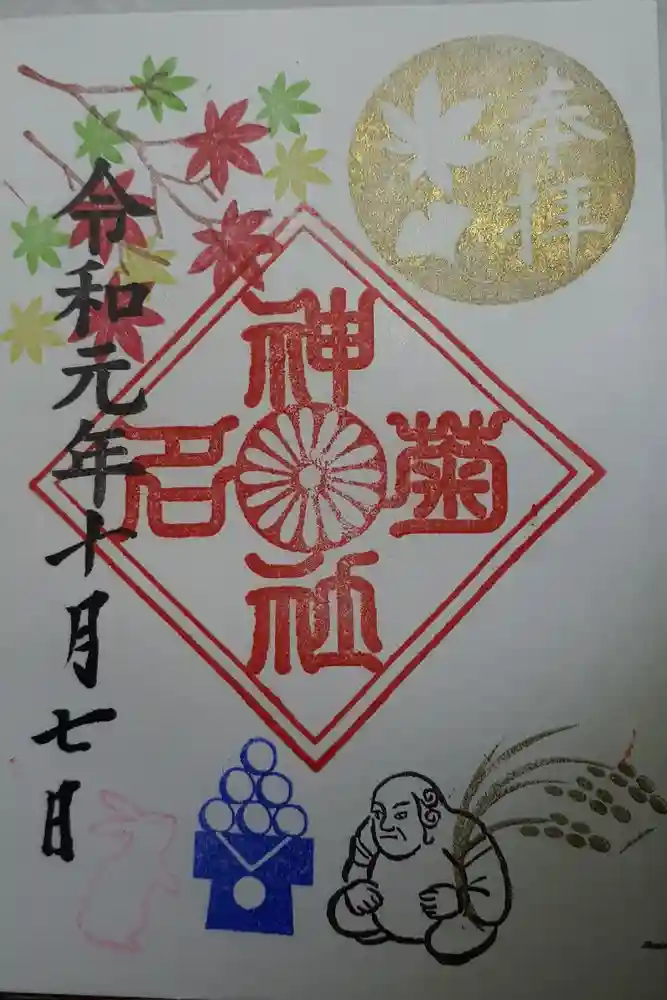 奉拝
菊名神社
令和元年十月七日